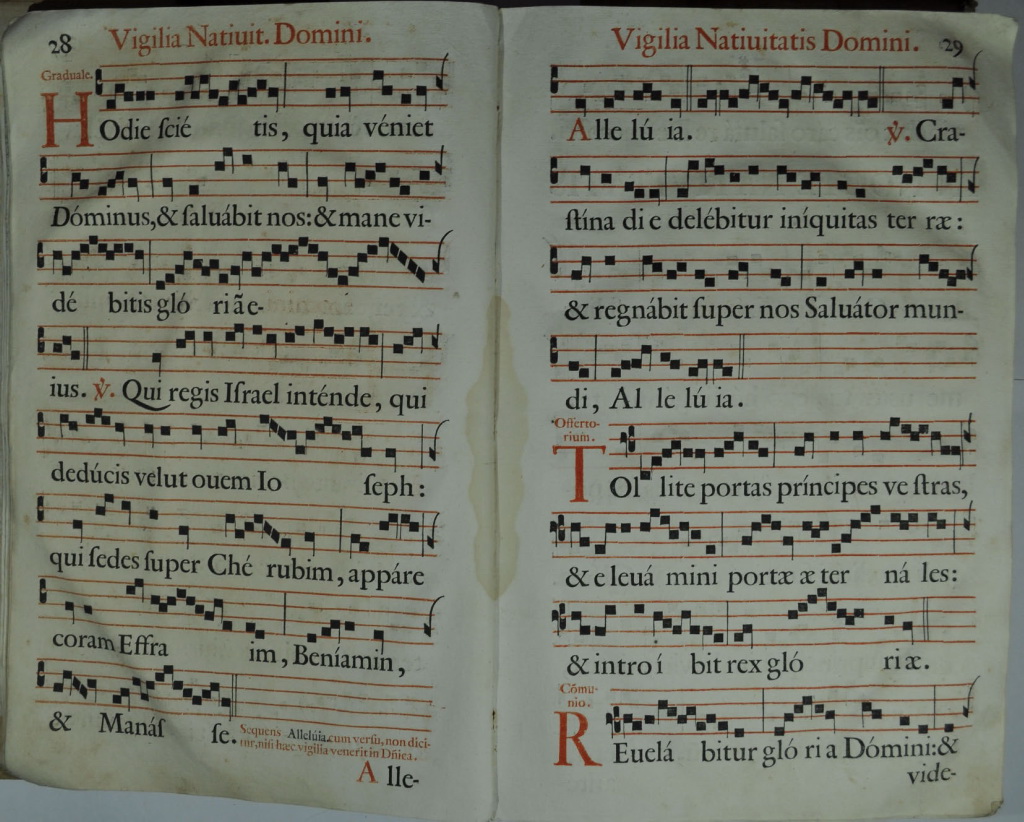 28 Vigilia Natiuit. Domini.
Graduale.
HOdie ſcié tis, quia véniet
Dóminus,& ſaluábit nos:& mane vi-
dé bitis gló riã e-
ius. ℣. Qui regis Iſrael inténde, qui
dedúcis velut ouem Io ſeph:
qui ſedes ſuper Ché rubim, appáre
coram Effra im, Beníamin,
& Manáſ ſe.
Sequens Allelúia, cum verſu, non dici-
tur, niſi hæc vigilia venerit in Dñica.
A lle-
Vigilia Natiuitatis Domini. 29
A lle lú ia. ℣. Cra-
ſtina di e delébitur iníquitas ter ræ:
& regnábit ſuper nos Saluátor mun-
di, Al le lú ia.
Offerto-
rium.
TOl lite portas príncipes ve ſtras,
& e leuá mini portæ æ ter ná les:
& intro í bit rex gló ri æ.
Cõmu-
nio.
REuelá bitur gló ri a Dómini:&
vide-